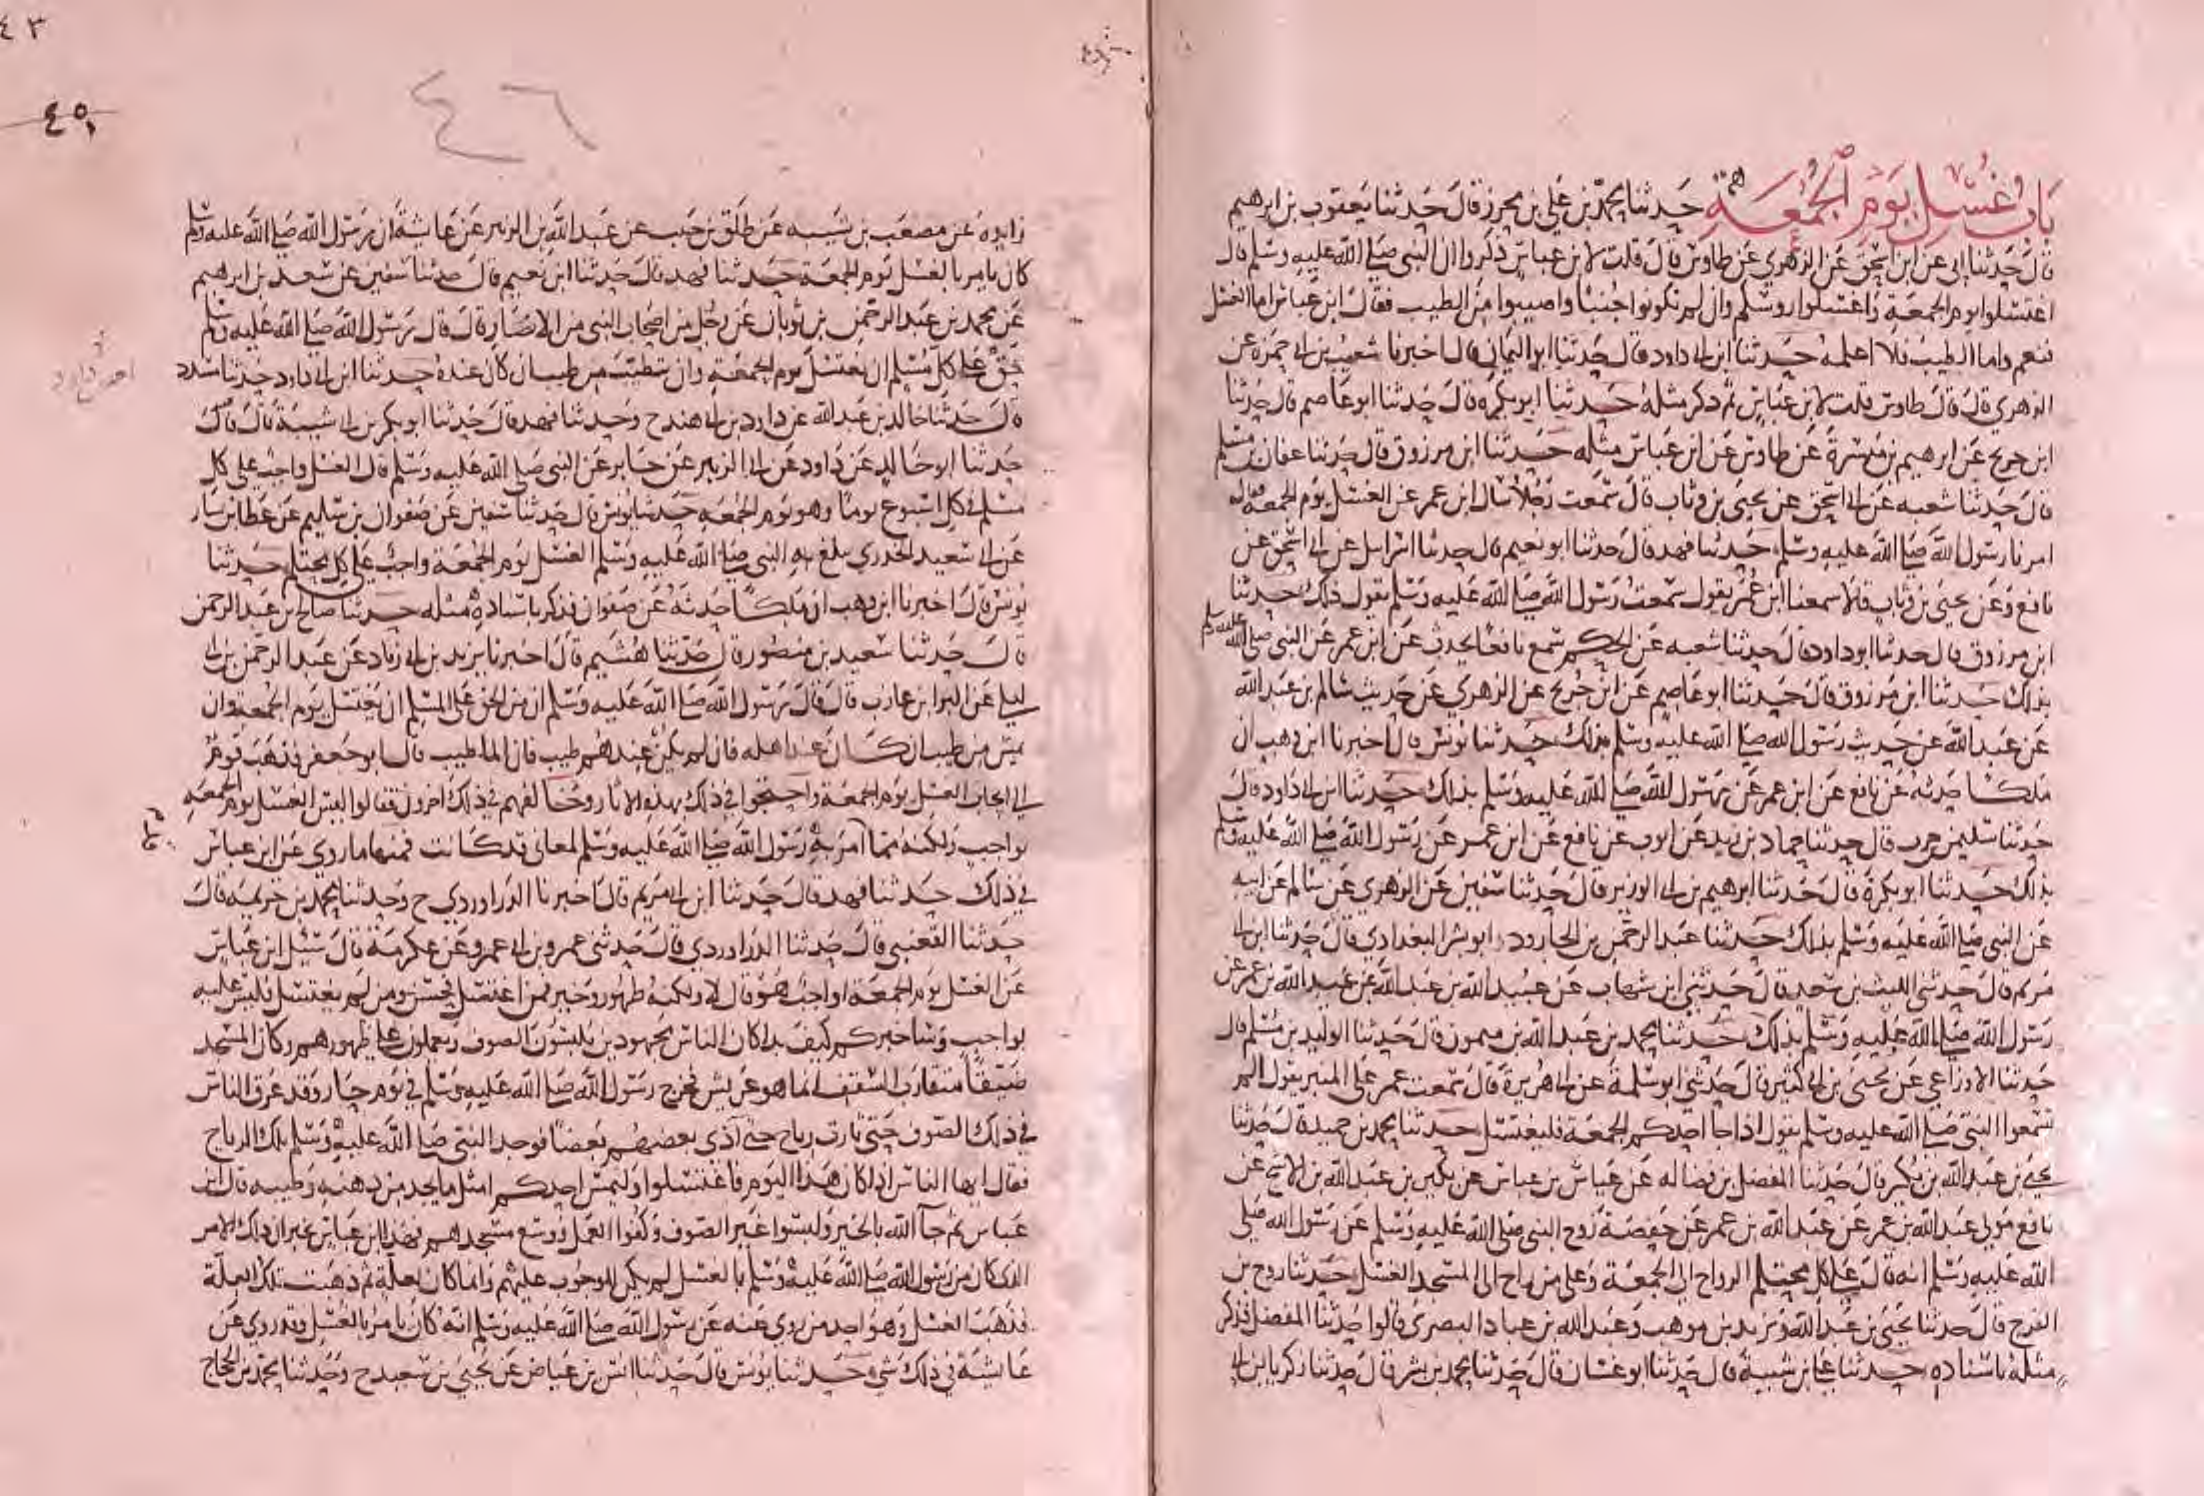 باب غسل يوم الجمعة حدثنا محمد بن علي بن محرز قال حدثنا يعقوب بن ابرهيم
قال حدثنا ابي عن ابن اسحق عن الزهري عن طاوس قال قلت لابن عباس ذكروا ان النبي صلى الله عليه وسلم قال
اغتسلوا يوم الجمعة واغسلوا روسكم وان لم تكونوا جنبا واصيبوا من الطيب فقال ابن عباس اما الغسل
فنعم واما الطيب فلا اعلمه حدثنا ابن ابي داود قال حدثنا ابو اليمان قال اخبرنا شعيب بن ابي حمزة عن
الزهري قال قال طاوس قلت لابن عباس ثم ذكر مثله حدثنا ابو بكرة قال حدثنا ابو عاصم قال حدثنا
ابن جريج عن ابرهيم بن ميسرة عن طاوس عن ابن عباس مثله حدثنا ابن مرزوق قال حدثنا عفان بن مسلم
قال حدثنا شعبه عن ابي اسحق عن يحيى بن وثاب قال سمعت رجلا سال ابن عمر عن الغسل يوم الجمعه فقال
امرنا رسول الله صلى الله عليه وسلم حدثنا فهد قال حدثنا ابو نعيم قال حدثنا اسرايل عن ابي اسحق عن
نافع وعن يحيى بن وثاب قالا سمعنا ابن عمر يقول سمعت رسول الله صلى الله عليه وسلم يقول ذلك حدثنا
ابن مرزوق قال حدثنا ابو داود قال حدثنا شعبه عن الحكم سمع نافعا يحدث عن ابن عمر عن النبي صلى الله عليه وسلم
بذلك حدثنا ابن مرزوق قال حدثنا ابو عاصم عن ابن جريج عن الزهري عن حديث سالم بن عبد الله
عن عبد الله عن حديث رسول الله صلى الله عليه وسلم بذلك حدثنا يونس قال اخبرنا ابن وهب ان
ملكا حدثه عن نافع عن ابن عمر عن رسول الله صلى الله عليه وسلم بذلك حدثنا ابن ابي داود قال
حدثنا سليمن بن حرب قال حدثنا حماد بن زيد عن ايوب عن نافع عن ابن عمر عن رسول الله صلى الله عليه وسلم
بذلك حدثنا ابو بكرة قال حدثنا ابرهيم بن ابي الوزير قال حدثنا سفين عن الزهري عن سالم عن ابيه
عن النبي صلى الله عليه وسلم بذلك حدثنا عبد الرحمن بن الجارود ابو بشر البغدادي قال حدثنا ابن ابي
مريم قال حدثني الليث بن سعد قال حدثني ابن شهاب عن عبيد الله بن عبد الله عن عبد الله بن عمر عن
رسول الله صلى الله عليه وسلم بذلك حدثنا محمد بن عبد الله بن ميمون قال حدثنا الوليد بن مسلم قال
حدثنا الاوزاعي عن يحيى بن ابي كثير قال حدثني ابو سلمة عن ابي هريرة قال سمعت عمر على المنبر يقول الم
تسمعوا النبي صلى الله عليه وسلم يقول اذا جا احدكم الجمعة فليغتسل حدثنا محمد بن حميد قال حدثنا
يحيى بن عبد الله بن بكير قال حدثنا المفضل بن فضاله عن عياش بن عباس عن بكير بن عبد الله بن الاشج عن
نافع مولى عبد الله بن عمر عن عبد الله بن عمر عن حفصة زوج النبي صلى الله عليه وسلم عن رسول الله صلى
الله عليه وسلم انه قال على كل محتلم الرواح الى الجمعة وعلى من راح الى المسجد الغسل حدثنا روح بن
الفرج قال حدثنا يحيى بن عبد الله ويزيد بن موهب وعبد الله بن عباد البصري قالوا حدثنا المفضل فذكر
مثله باسناده حدثنا علي بن شيبة قال حدثنا ابو غسان قال حدثنا محمد بن بشر قال حدثنا زكريا بن ابي
٤٣
٤٥
٤٦
زايده عن مصعب بن شيبه عن طلق بن حبيب عن عبد الله بن الزبير عن عايشة ان رسول الله صلى الله عليه وسلم
كان يامر بالغسل يوم الجمعة حدثنا فهد قال حدثنا ابو نعيم قال حدثنا سفين عن سعد بن ابرهيم
عن محمد بن عبد الرحمن بن ثوبان عن رجل من اصحاب النبي من الانصار قال قال رسول الله صلى الله عليه وسلم
حق على كل مسلم ان يغتسل يوم الجمعة وان يتطيب من طيب ان كان عنده حدثنا ابن ابي داود حدثنا مسدد
قال حدثنا خالد بن عبد الله عن داود بن ابي هند ح وحدثنا فهد قال حدثنا ابو بكر بن ابي شيبة قال قال
حدثنا ابو خالد عن داود عن ابي الزبير عن جابر عن النبي صلى الله عليه وسلم قال الغسل واجب على كل
مسلم في كل اسبوع يوما وهو يوم الجمعه حدثنا يونس قال حدثنا سفين عن صفوان بن سليم عن عطا بن يسار
عن ابي سعيد الخدري يبلغ به النبي صلى الله عليه وسلم الغسل يوم الجمعة واجب على كل محتلم حدثنا
يونس قال اخبرنا ابن وهب ان ملكا حدثه عن صفوان فذكر باسناده مثله حدثنا صالح بن عبد الرحمن
قال حدثنا سعيد بن منصور قال حدثنا هشيم قال اخبرنا يزيد بن ابي زياد عن عبد الرحمن بن ابي
ليلى عن البرا بن عازب قال قال رسول الله صلى الله عليه وسلم ان من الحق على المسلم ان يغتسل يوم الجمعة وان
يمس من طيب ان كان عند اهله فان لم يكن عندهم طيب فان الما طيب قال ابو جعفر فذهب قوم
الى ايجاب الغسل يوم الجمعة واحتجوا في ذلك بهذه الاثار وخالفهم في ذلك اخرون فقالوا ليس الغسل يوم الجمعة
بواجب ولكنه مما امر به رسول الله صلى الله عليه وسلم لمعاني قد كانت فمنها ما روي عن ابن عباس
في ذلك حدثنا فهد قال حدثنا ابن ابي مريم قال اخبرنا الدراوردي ح وحدثنا محمد بن خزيمه قال
حدثنا القعنبي قال حدثنا الدراوردي قال حدثني عمرو بن ابي عمرو عن عكرمة قال سئل ابن عباس
عن الغسل يوم الجمعة اواجب هو قال لا ولكنه طهور وخير فمن اغتسل فحسن ومن لم يغتسل فليس عليه
بواجب وساخبركم كيف بدا كان الناس مجهودين يلبسون الصوف ويعملون على ظهورهم وكان المسجد
ضيقا متقارب السقف انما هو عريش فخرج رسول الله صلى الله عليه وسلم في يوم حار وقد عرق الناس
في ذلك الصوف حتى ثارت رياح حتى آذى بعضهم بعضا فوجد النبي صلى الله عليه وسلم تلك الرياح
فقال ايها الناس اذا كان هذا اليوم فاغتسلوا وليمس احدكم امثل ما يجد من دهنه وطيبه قال ابن
عباس ثم جآ الله بالخير ولبسوا غير الصوف وكفوا العمل ووسع مسجدهم فهذا ابن عباس يخبر ان ذلك الامر
الذي كان من رسول الله صلى الله عليه وسلم بالغسل لم يكن للوجوب عليهم وانما كان لعلة ثم ذهبت تلك العلة
فذهب الغسل وهو احد من روي عنه عن رسول الله صلى الله عليه وسلم انه كان يامر بالغسل وقد روي عن
عايشة في ذلك شيء حدثنا يونس قال حدثنا انس بن عياض عن يحيى بن سعيد ح وحدثنا محمد بن الحجاج